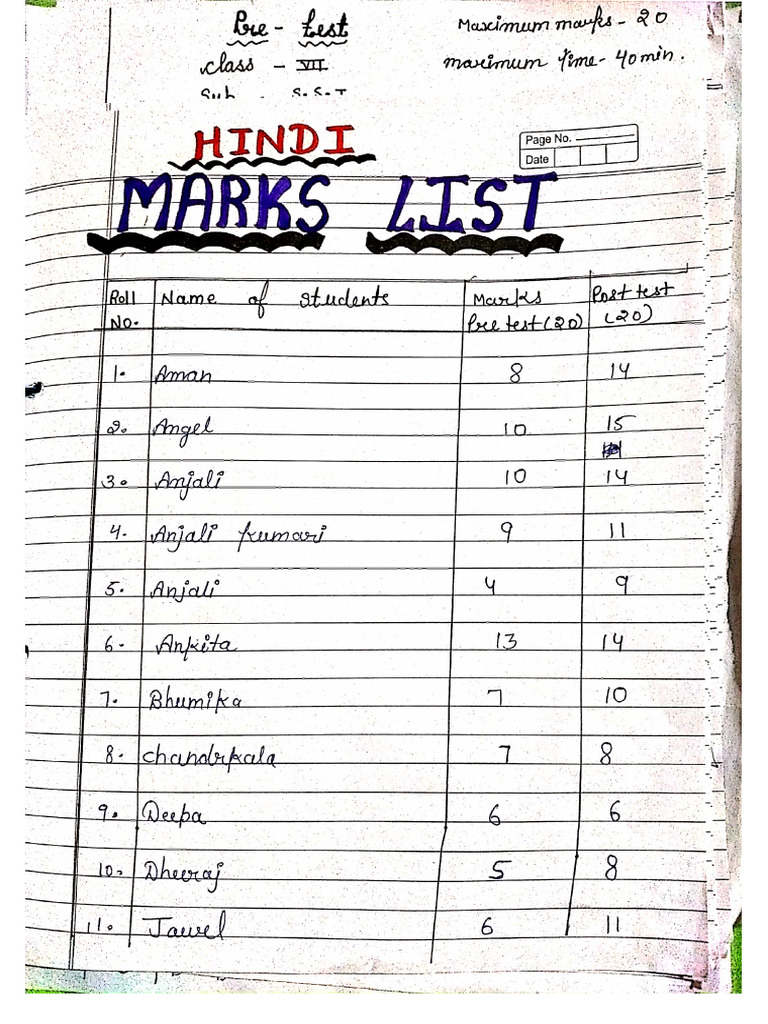 Pre - test
Maximum marks - 20
class - VII
maximum time - 40 min.
Sub . S.S.T
HINDI
Page No.
Date
MARKS LIST
Roll No. Name of students Marks Pre test (20) Post test (20)
1. Aman 8 14
2. Angel 10 15
3. Anjali 10 14
4. Anjali kumari 9 11
5. Anjali 4 9
6. Ankita 13 14
7. Bhumika 7 10
8. chandrkala 7 8
9. Deepa 6 6
10. Dheeraj 5 8
11. Jawel 6 11